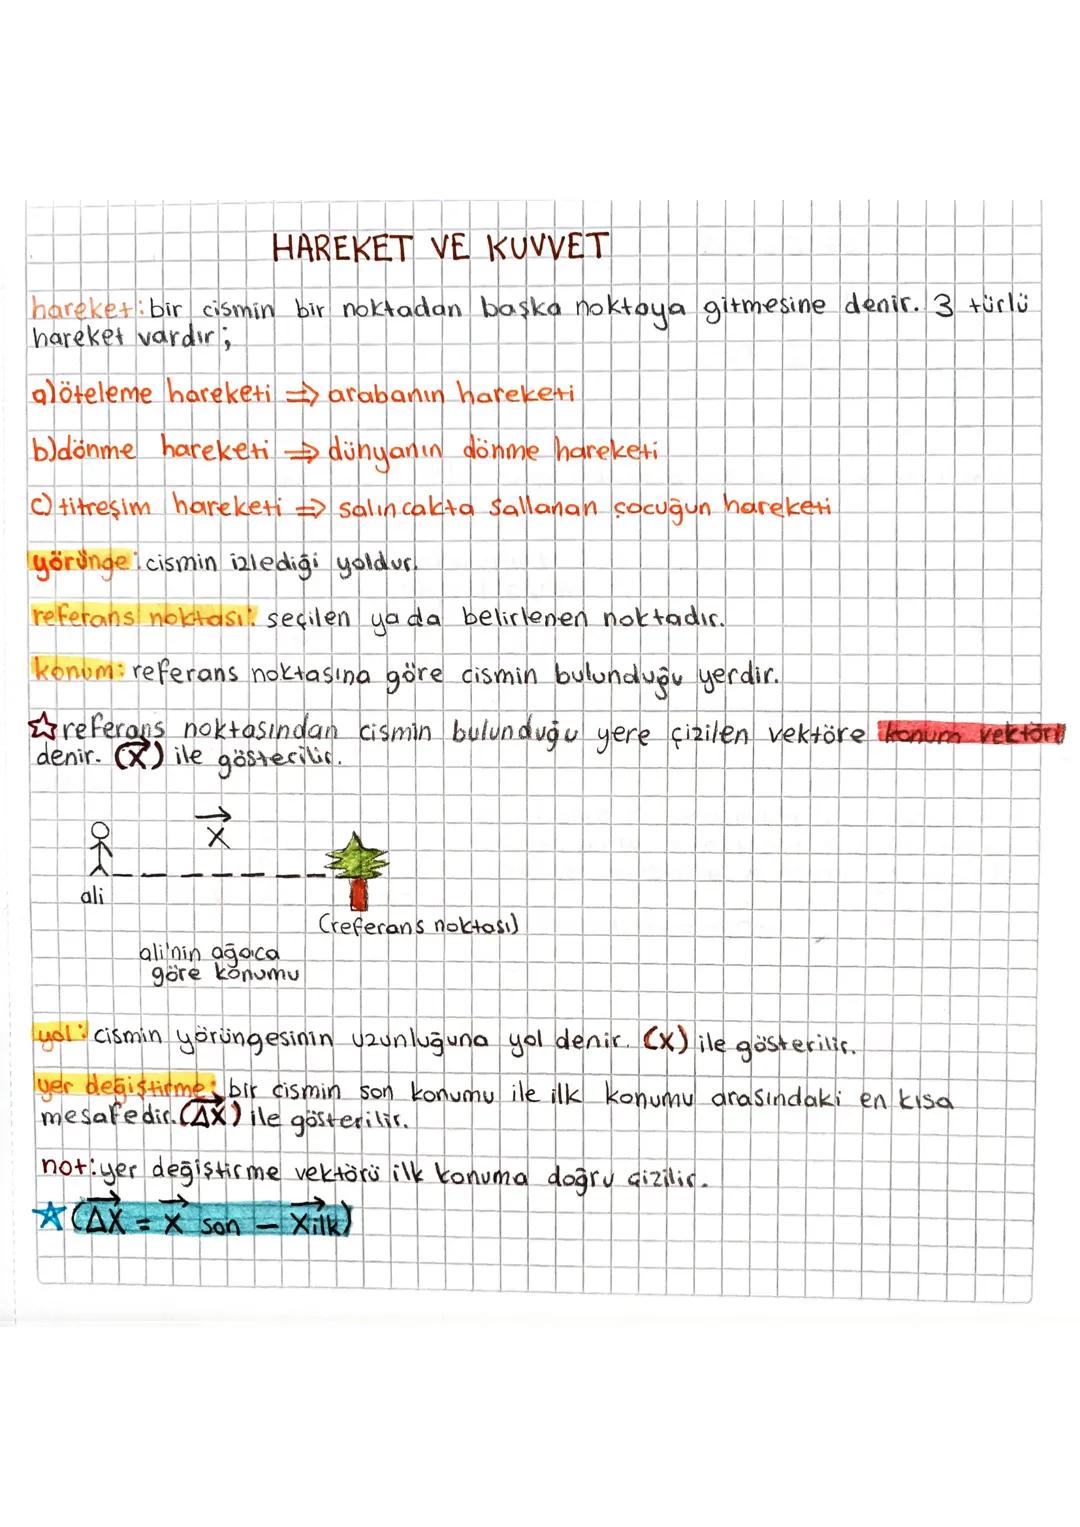 HAREKET VE KUVVET
hareket: bir cismin bir noktadan başka noktaya gitmesine denir. 3 türlü
hareket vardır;
a) öteleme hareketi ⇒ arabanın hareketi
b) dönme hareketi ⇒ dünyanın dönme hareketi
c) titreşim hareketi ⇒ salıncakta sallanan çocuğun hareketi
yörünge: cismin izlediği yoldur.
referans noktası: seçilen ya da belirlenen noktadır.
konum: referans noktasına göre cismin bulunduğu yerdir.
☆ referans noktasından cismin bulunduğu yere çizilen vektöre konum vektörü
denir. (x⃗) ile gösterilir.
x⃗
ali
(referans noktası)
ali'nin ağaca
göre konumu
yol: cismin yörüngesinin uzunluğuna yol denir. (x) ile gösterilir.
yer değiştirme: bir cismin son konumu ile ilk konumu arasındaki en kısa
mesafedir. (Δx⃗) ile gösterilir.
not: yer değiştirme vektörü ilk konuma doğru çizilir.
★ (Δx⃗ = x⃗ son - x⃗ilk)